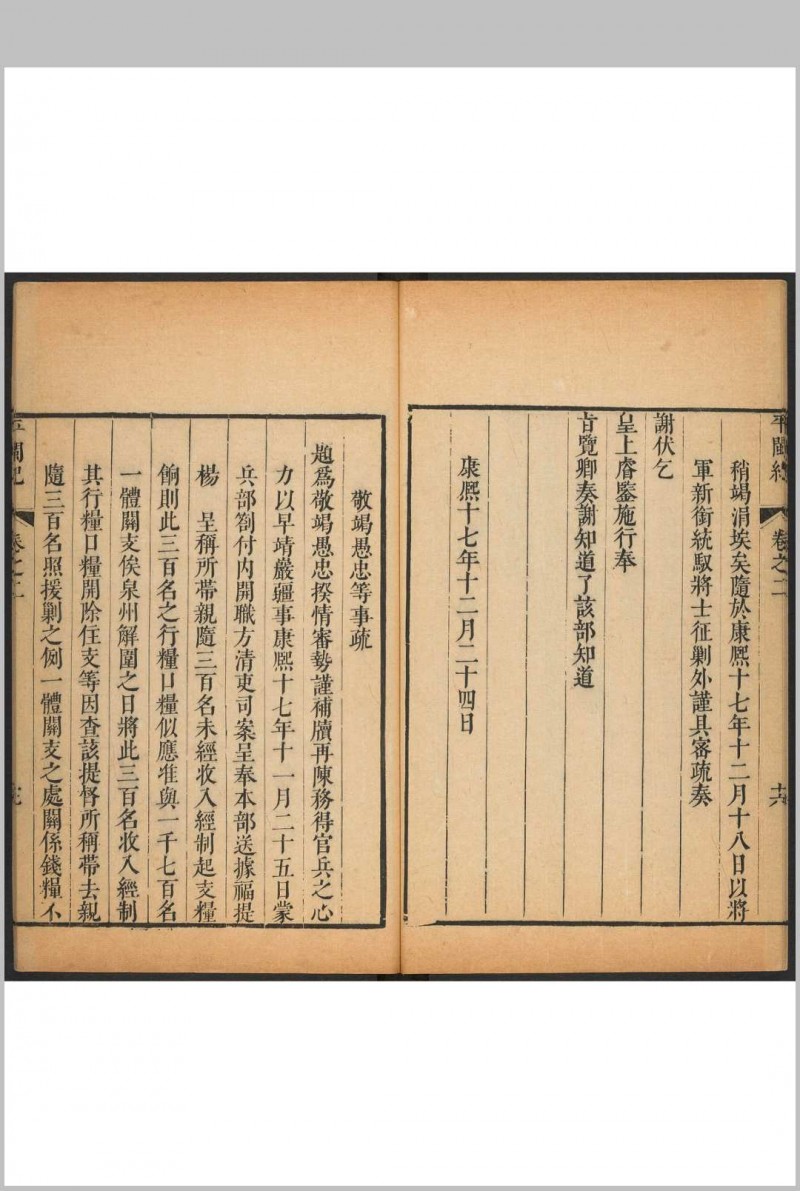 平閩紀
卷之二
稍竭涓埃矣隨於康熙十七年十二月十八日以將
軍新銜統馭將士征剿外謹具審疏奏
謝伏乞
皇上睿鑒施行奉
旨覽卿奏謝知道了該部知道
康熙十七年十二月二十四日
敬竭愚忠等事疏
題爲敬竭愚忠揆情審勢謹補牘再陳務得官兵之心
力以早靖嚴疆事康熙十七年十一月二十五日蒙
兵部劄付內開職方清吏司案呈奉本部送據福提
楊 呈稱所帶親隨三百名未經收入經制起支糧
餉則此三百名之行糧口糧似應准與一千七百名
一體關支俟泉州解圍之日將此三百名收入經制
其行糧口糧開除住支等因查該提督所稱帶去親
隨三百名照援剿之例一體關支之處關係錢糧不
平閩紀
卷之二